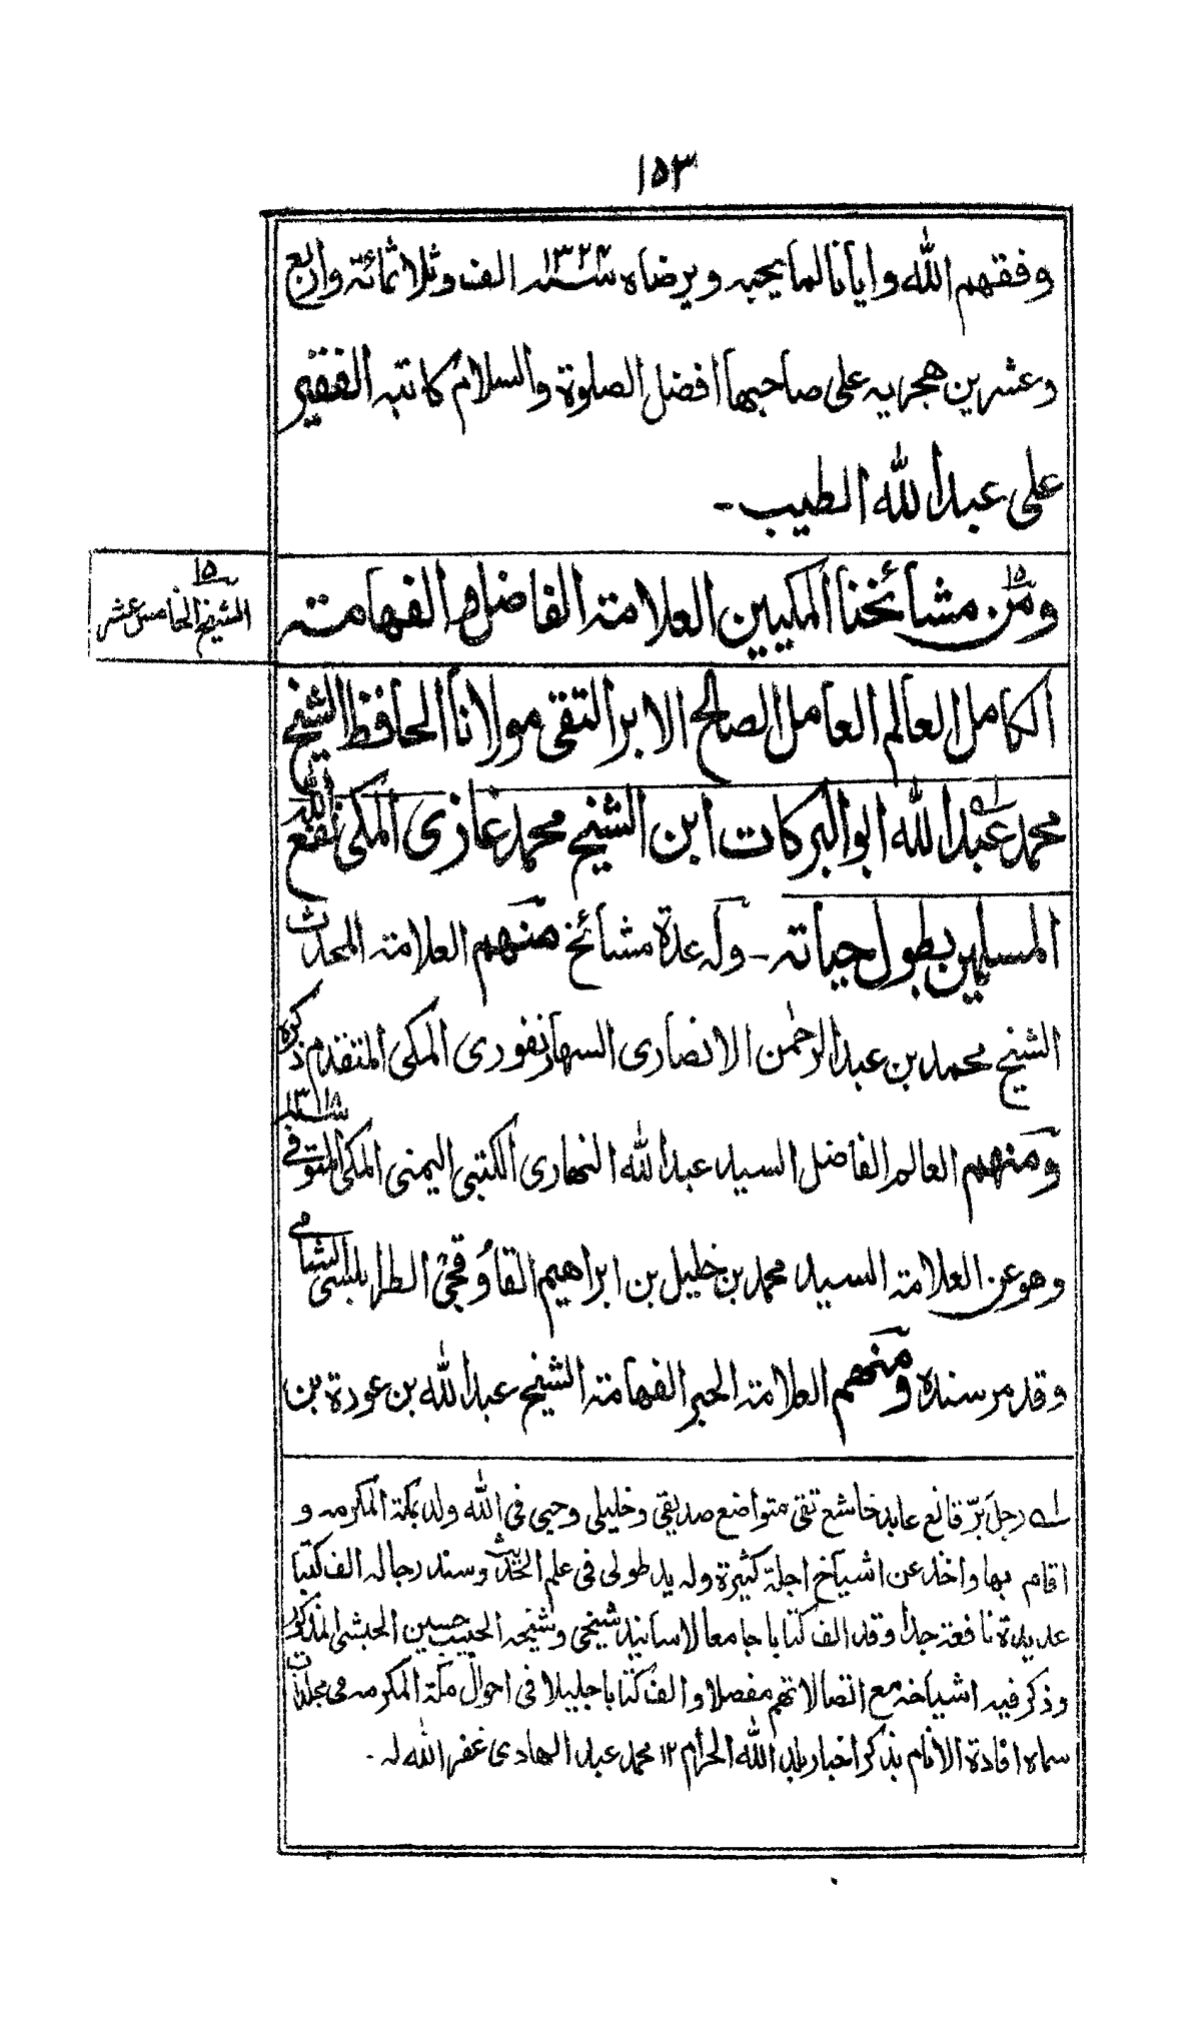 ١٥٣
وفقهم الله وايانا لما يحبه ويرضاه سنة ١٣٢٤ الف وثلاثمائة واربع
وعشرين هجريه على صاحبها افضل الصلوة والسلام كاتبه الفقير
على عبد الله الطيب -
ومن ١٥ مشائخنا المكيين العلامة الفاضل والفهامة
١٥ الشيخ الخامس عشر
الكامل العالم العامل الصالح الابر التقى مولانا الحافظ الشيخ
محمد عبد الله ابو البركات ابن الشيخ محمد غازى المكى نفع الله
المسلمين بطول حياته - وله عدة مشائخ منهم العلامة المحدث
الشيخ محمد بن عبد الرحمٰن الانصارى السهارنفورى المكى المتقدم ذكره
ومنهم العالم الفاضل السيد عبد الله النهارى الكتبى اليمنى المكى المتوفى سنة ١٣١٨
وهو عن العلامة السيد محمد بن خليل بن ابراهيم القاوُقجىْ الطرابلسى الشامى
وقد مر سنده ومنهم العلامة الحبر الفهامة الشيخ عبد الله بن عودة بن
له رجل برّ قانع عابد خاشع تقى متواضع صديقى وخليلى وحبى فى الله ولد بمكة المكرمه و
اقام بها واخذ عن اشياخ اجلة كثيرة وله يد طولى فى علم الحديث وسند رجاله الف كتبا
عديدة نافعة جدا وقد الف كتابا جامعا لاسانيد شيخى وشيخه الحبيب حسين الحبشى المذكور
وذكر فيه اشياخه مع اتصالاتهم مفصلا والف كتابا جليلا فى احوال مكة المكرمه فى مجلدات
سماه افادة الانام بذكر اخبار بلد الله الحرام ١٢ محمد عبد الهادى غفر الله له -